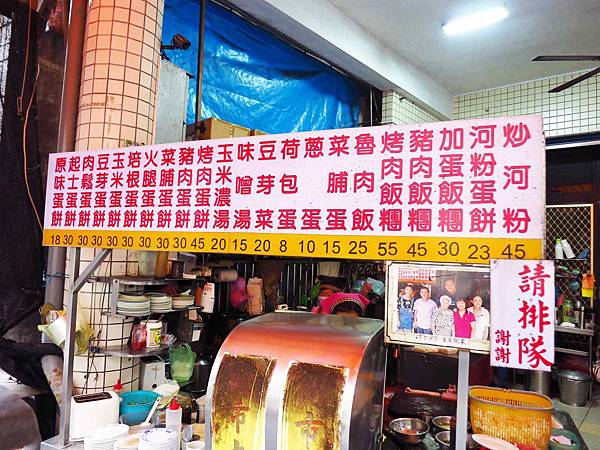 原味蛋餅 18
起士蛋餅 30
肉鬆蛋餅 30
豆芽蛋餅 30
玉米蛋餅 30
焙根蛋餅 30
火腿蛋餅 30
菜脯蛋餅 30
豬肉蛋餅 30
烤肉蛋餅 45
玉米濃湯 20
味噌湯 15
豆芽菜 20
荷包蛋 8
蔥蛋 10
菜脯蛋 15
魯肉飯 25
烤肉飯糰 55
豬肉飯糰 45
加蛋飯糰 30
河粉蛋餅 23
炒河粉 45
請排隊
謝謝